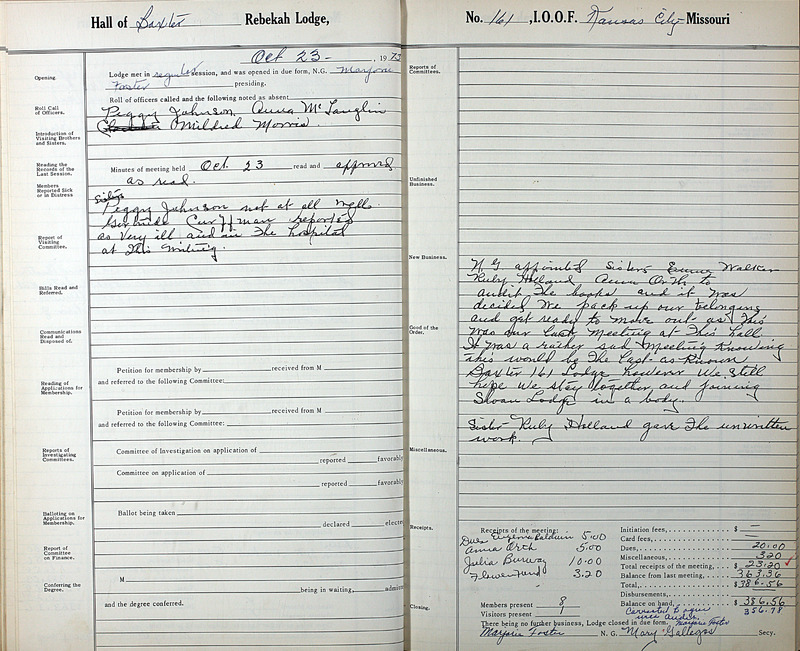 Hall of Baxter Rebekah Lodge,
Oct 23 - , 1973
Opening.
Lodge met in regular session, and was opened in due form, N.G. Marjorie
Foster presiding.
Roll Call of Officers.
Roll of officers called and the following noted as absent
Peggy Johnson, Anna McLanglin
Mildred Morris.
Introduction of Visiting Brothers and Sisters.
Reading the Records of the Last Session.
Minutes of meeting held Oct. 23 read and approved
as read.
Members Reported Sick or in Distress
Sisters
Peggy Johnson not at all well.
Gertrude Curffman reported
as very ill and in The hospital
at this writing.
Report of Visiting Committee.
Bills Read and Referred.
Communications Read and Disposed of.
Petition for membership by received from M
and referred to the following Committee:
Reading of Applications for Membership.
Petition for membership by received from M
and referred to the following Committee:
Reports of Investigating Committees.
Committee of Investigation on application of
reported favorably
Committee on application of
reported favorably
Balloting on Applications for Membership.
Ballot being taken
declared elected
Report of Committee on Finance.
Conferring the Degree.
M
being in waiting, admi
and the degree conferred.
No. 161, I.O.O.F. Kansas City Missouri
Reports of Committees.
Unfinished Business.
New Business.
N G appointed Sisters Emma Walker
Ruby Holland Anna Orth to
audit The books and it was
decided We pack up our belonging
and get ready to move out as This
was our last meeting at This hall
Good of the Order.
It was a rather sad meeting knowing
this would be The last as known
Baxter 161 Lodge however We still
hope We stay together and joining
Sloan Lodge in a body.
Sister Ruby Holland gave The unwritten
work.
Miscellaneous.
Receipts.
Receipts of the meeting:
Dues Eugenia Baldwin 5.00
Anna Orth 5.00
Julia 10.00
Flower Fund 3.20
Initiation fees, $ —
Card fees, —
Dues, 20.00
Miscellaneous, 320
Total receipts of the meeting, $ 23.20
Balance from last meeting, 363.36
Total, $ 386.56
Disbursements, —
Balance on hand, $ 386.56
386.78
Members present 8
Visitors present 1
Closing.
There being no further business, Lodge closed in due form. Marjorie Foster
Marjorie Foster N. G. Mary Gallegos Secy.